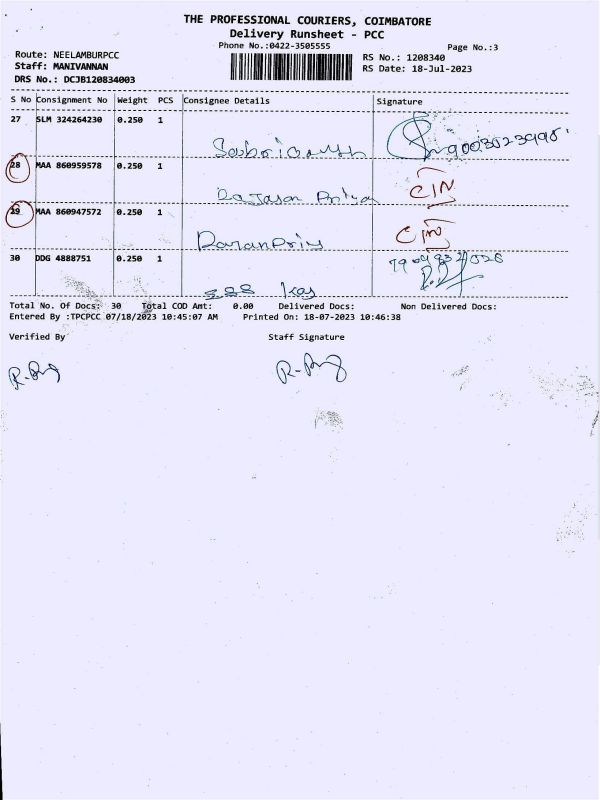 THE PROFESSIONAL COURIERS, COIMBATORE
Delivery Runsheet - PCC
Phone No.:0422-3505555
Page No.:3
Route: NEELAMBURPCC
RS No.: 1208340
Staff: MANIVANNAN
RS Date: 18-Jul-2023
DRS No.: DCJB120834003
S No Consignment No Weight PCS Consignee Details Signature
27 SLM 324264230 0.250 1
28 MAA 860959578 0.250 1
Rajasan Priya
CIN
29 MAA 860947572 0.250 1
CIN
30 DDG 4888751 0.250 1
Total No. Of Docs: 30 Total COD Amt: 0.00 Delivered Docs: Non Delivered Docs:
Entered By :TPCPCC 07/18/2023 10:45:07 AM Printed On: 18-07-2023 10:46:38
Verified By Staff Signature